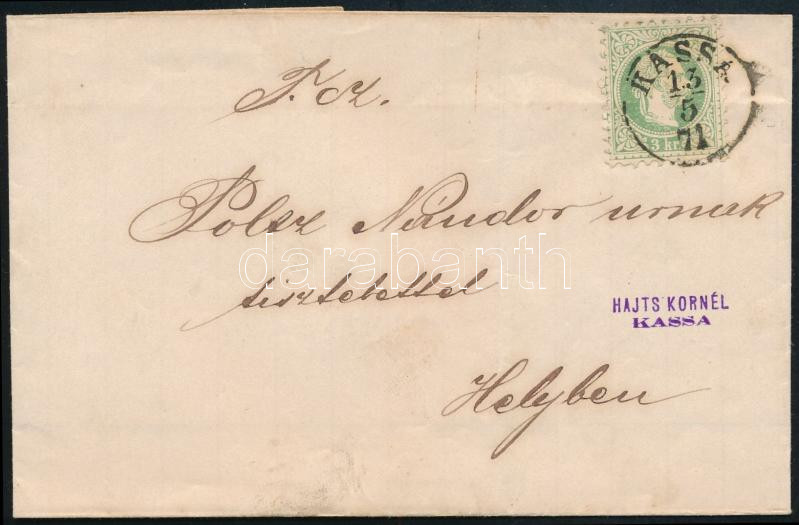 T. cz.
KASSA
13
5
71
3 kr
Polsz Nándor urnak
darabanth
tisztelettel
HAJTS KORNÉL
KASSA
Helyben